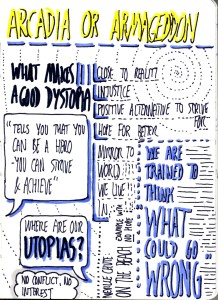 ARCADIA OR ARMAGEDDON
WHAT MAKES
A GOOD DYSTOPIA
CLOSE TO REALITY
INJUSTICE
POSITIVE ALTERNATIVE TO STRIVE
FOR
HOPE FOR BETTER
"TELLS YOU THAT YOU
CAN BE A HERO
YOU CAN STRIVE
& ACHIEVE"
MIRROR TO
WORLD
WE LIVE
IN
WE ARE
TRAINED TO
THINK
"WHAT
COULD GO
WRONG"
WHERE ARE OUR
UTOPIAS?
NO CONFLICT, NO
INTEREST
ON THE BEACH
EXAMPLE WITH
NO HOPE